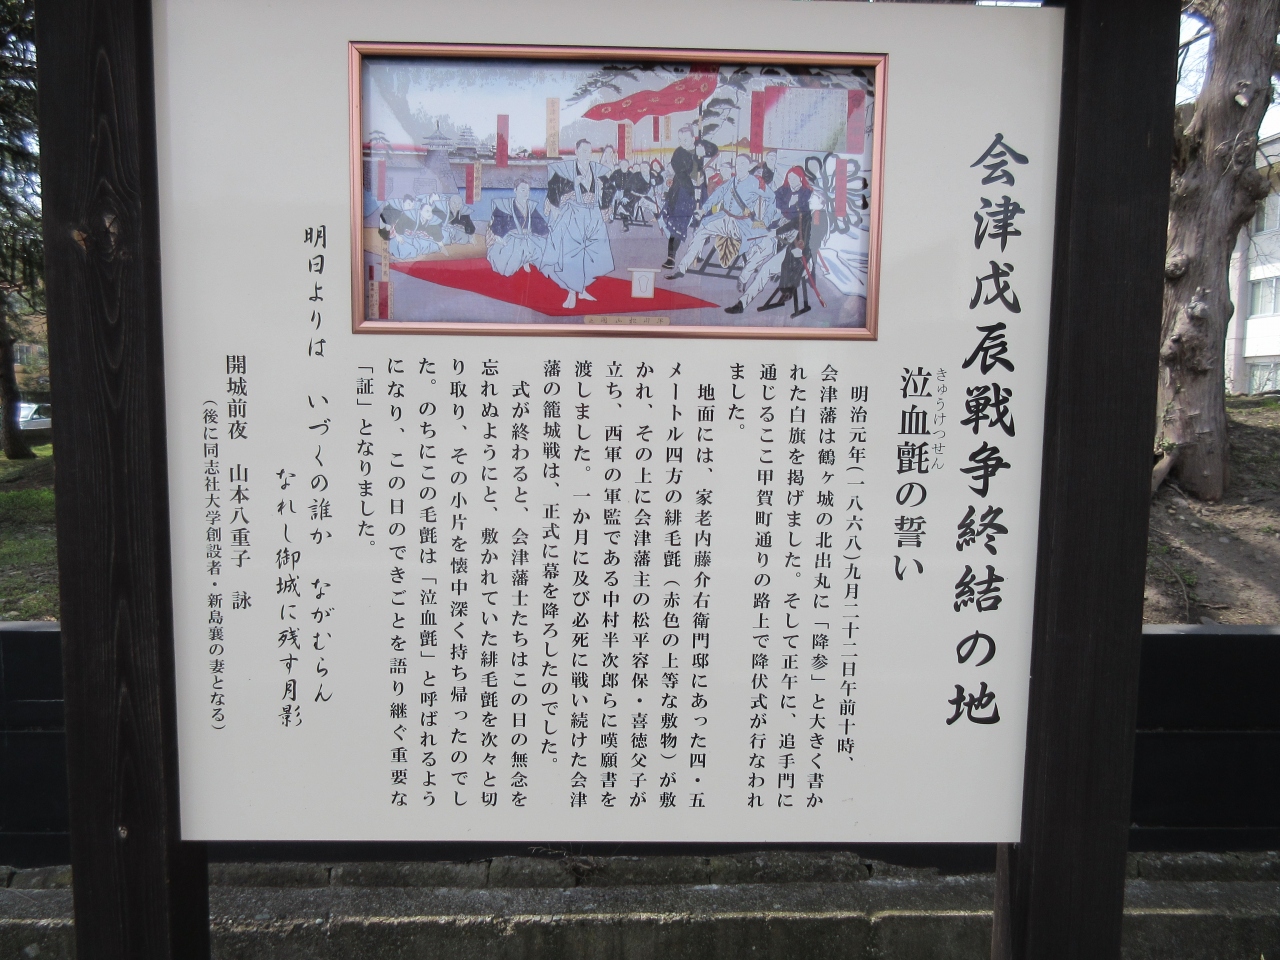 会津戊辰戦争終結の地
泣血氈の誓い
きゅうけっせん
明治元年(一八六八)九月二十二日午前十時、
会津藩は鶴ヶ城の北出丸に「降参」と大きく書か
れた白旗を掲げました。そして正午に、追手門に
通じるここ甲賀町通りの路上で降伏式が行なわれ
ました。
地面には、家老内藤介右衛門邸にあった四・五
メートル四方の緋毛氈(赤色の上等な敷物)が敷
かれ、その上に会津藩主の松平容保・喜徳父子が
立ち、西軍の軍監である中村半次郎らに嘆願書を
渡しました。一か月に及び必死に戦い続けた会津
藩の籠城戦は、正式に幕を降ろしたのでした。
式が終わると、会津藩士たちはこの日の無念を
忘れぬようにと、敷かれていた緋毛氈を次々と切
り取り、その小片を懐中深く持ち帰ったのでし
た。のちにこの毛氈は「泣血氈」と呼ばれるよう
になり、この日のできごとを語り継ぐ重要な
「証」となりました。
明日よりは いづくの誰か ながむらん
なれし御城に残す月影
開城前夜 山本八重子 詠
(後に同志社大学創設者・新島襄の妻となる)